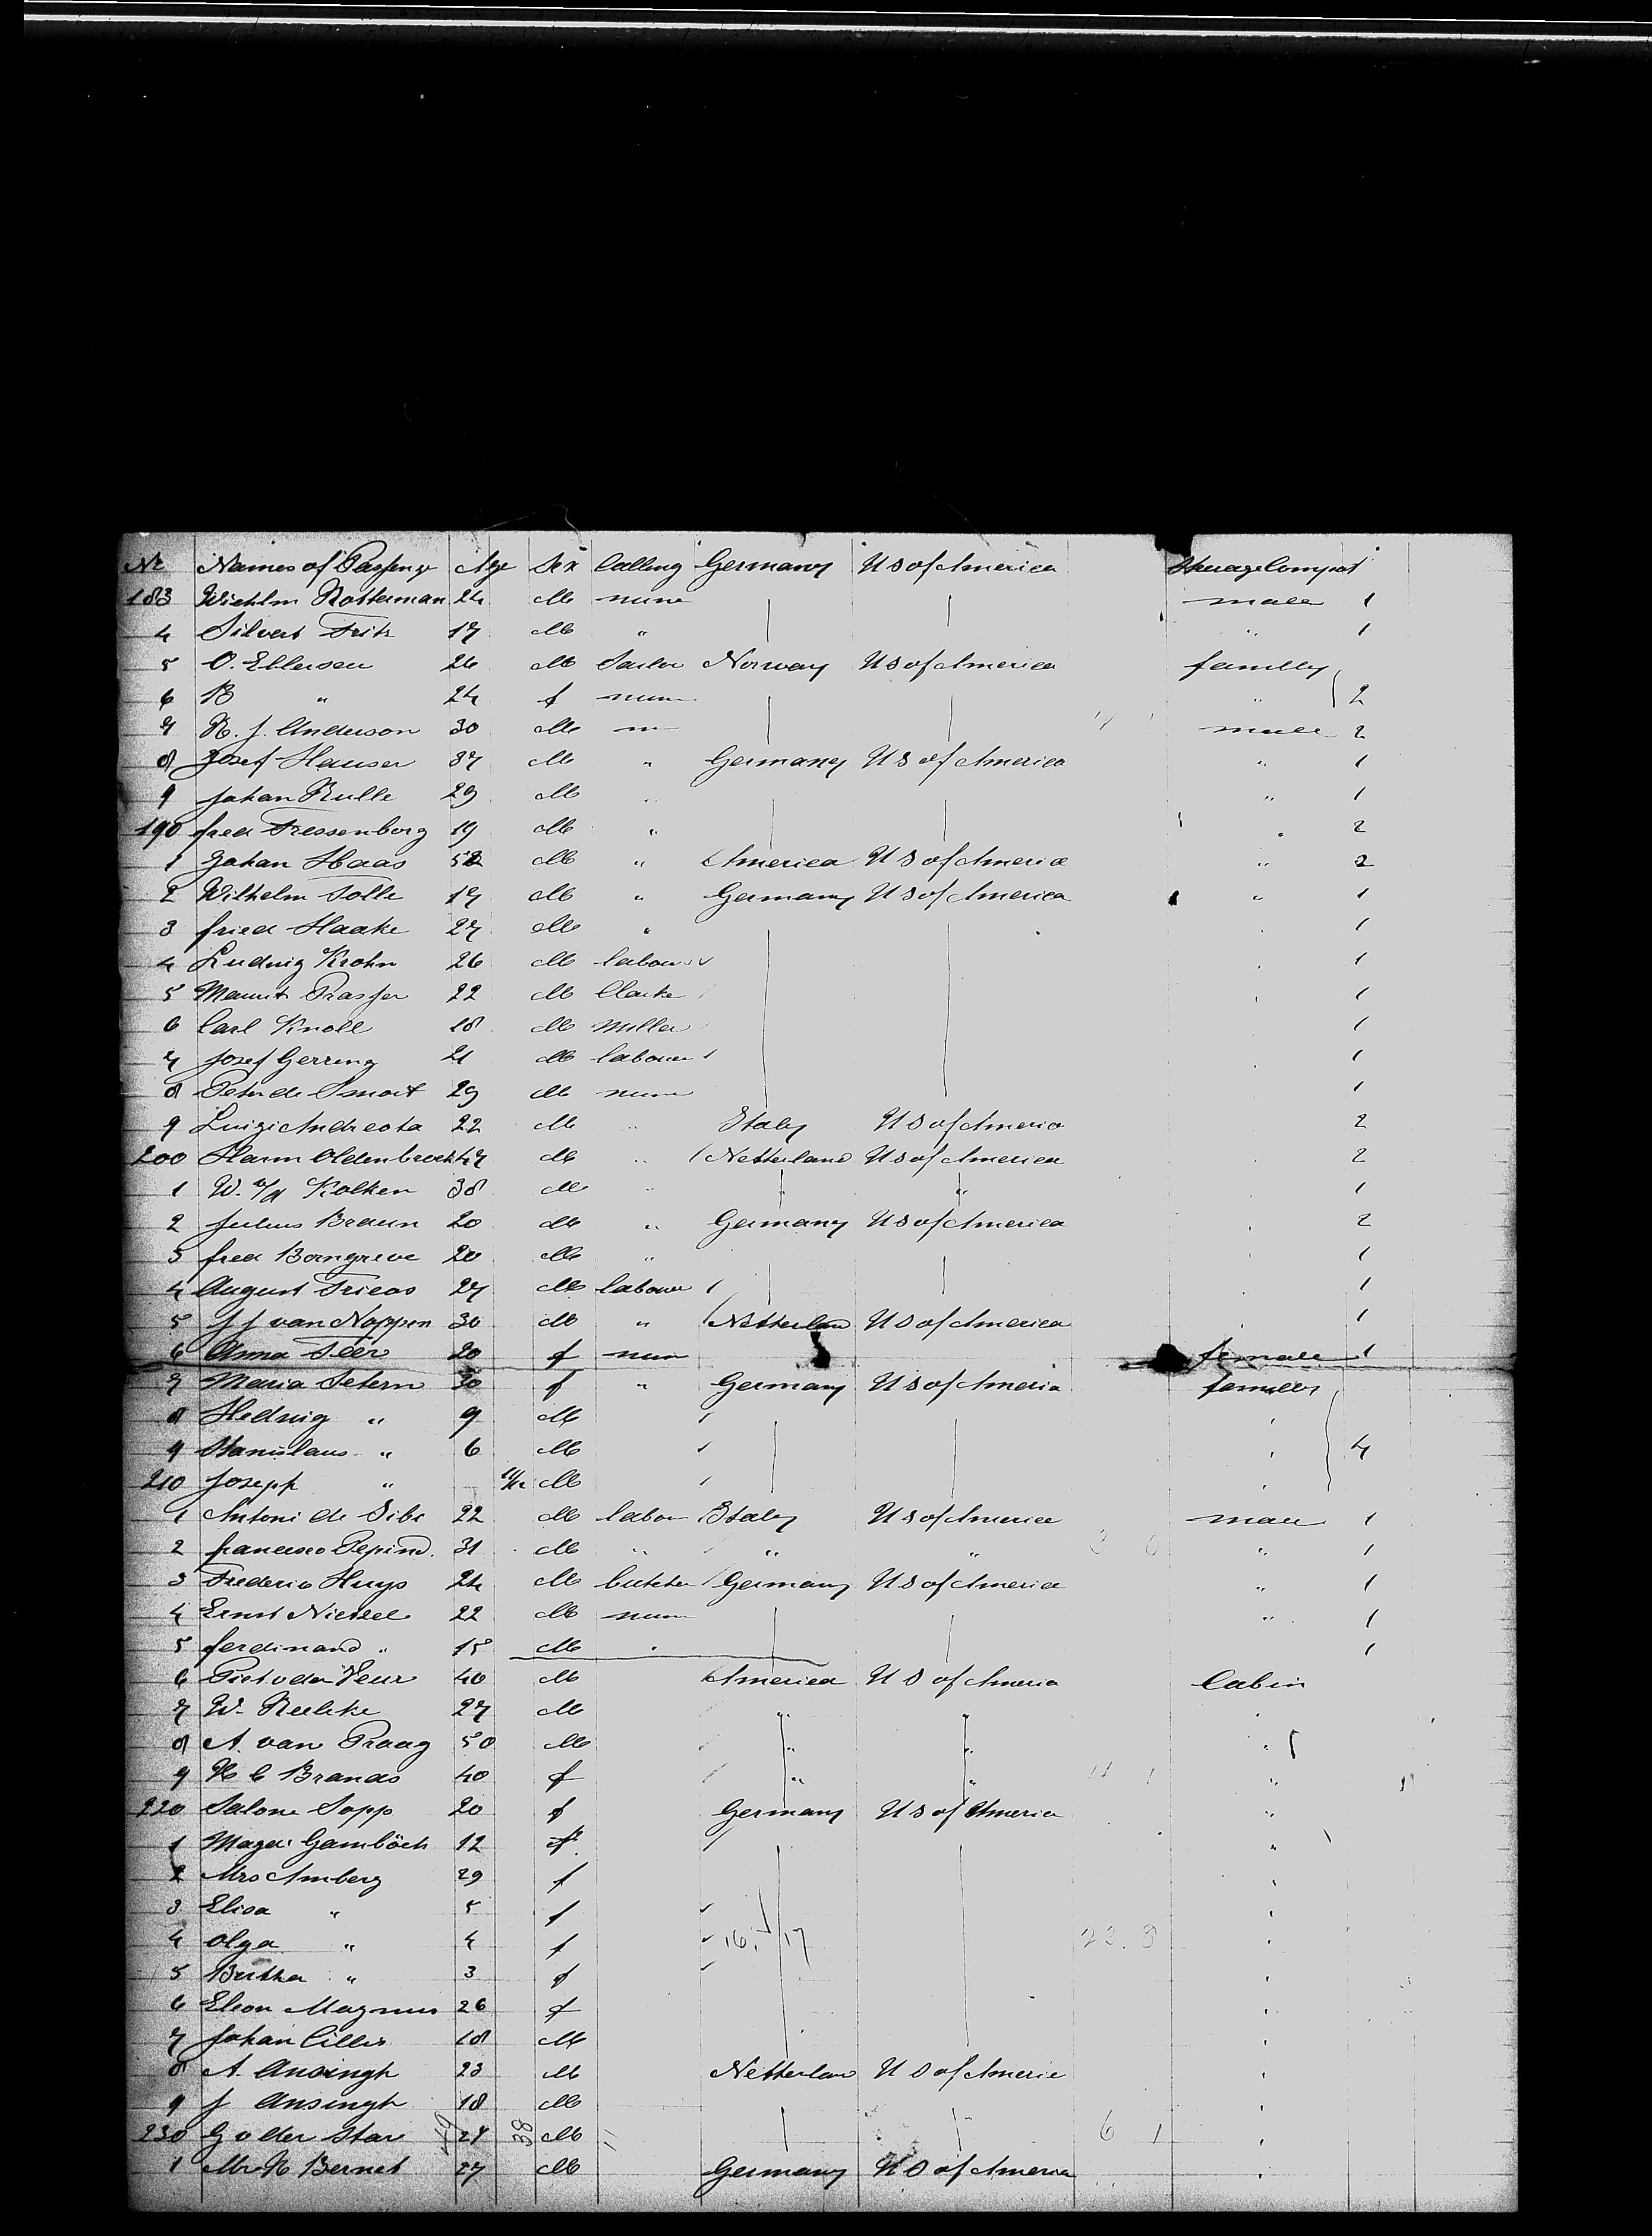 Nr Names of Passenge Age Sex Calling Germany US of America Steerage Compart
183 Wiehlm Rotterman 24 M none male 1
4 Silvert Fritz 17 M " " 1
5 O. Ellersen 26 M Sailor Norway US of America familly
6 B " 24 f none " 2
7 R. J. Anderson 30 M male 2
8 Josef Hauser 37 M " Germany US of America " 1
9 Johan Rulle 29 M " " 1
190 fred Fressenborg 19 M " " 2
1 Johan Haas 52 M " America US of America " 2
2 Wilhelm Solle 17 M " Germany US of America " 1
3 fried Haake 27 M " 1
4 Ludwig Krohn 26 M labour 1
5 22 M Clerke 1
6 Carl Knoll 18 M Miller 1
7 Josef Gerring 21 M labouer 1
8 Peter de Smoit 29 M none 1
9 Luizi Andreota 22 M " Italy US of America 2
200 Harm Oldenbroek 47 M " Netherland US of America 2
1 W. v/d Kolken 38 M " " 1
2 Julius Braun 20 M " Germany US of America 2
3 fred Borngreve 20 M " 1
4 August Frieas 27 M labouer 1
5 J J van Noppen 30 M " Netherland US of America 1
6 Anna Feer 20 f none female 1
7 Maria Setern 30 f " Germany US of America familly
8 Hedwig " 9 M
9 Stanislaus " 6 M 4
210 Joseph " M
1 Antoni de Sibi 22 M labou Italy US of America male 1
2 francesco Pepino 31 M " " " " 1
3 Frederic Huys 24 M butcher Germany US of America " 1
4 Ernst Nietzel 22 M none " 1
5 ferdinand " 15 M " 1
6 Piet v der Veur 40 M America US of America Cabin
7 W. Reelike 27 M " " "
8 A. van Praag 50 M " " "
9 H C Brands 40 f " " "
220 Salone Sopp 20 f Germany US of America "
1 Magd. Gamböch 12 f "
2 Mrs Amberg 29 f "
3 Elisa " 5 f "
4 Olga " 4 f 16 17 23. 9 "
5 Bertha " 3 f "
6 Eleon Magnus 26 f "
7 Johan Cillis 18 M "
8 A. Ansingh 23 M Netherland US of Americ "
9 J Ansingh 18 M "
230 G v der Star 24 38 M 6 1 "
1 Mr H Bernet 27 M Germany US of America "